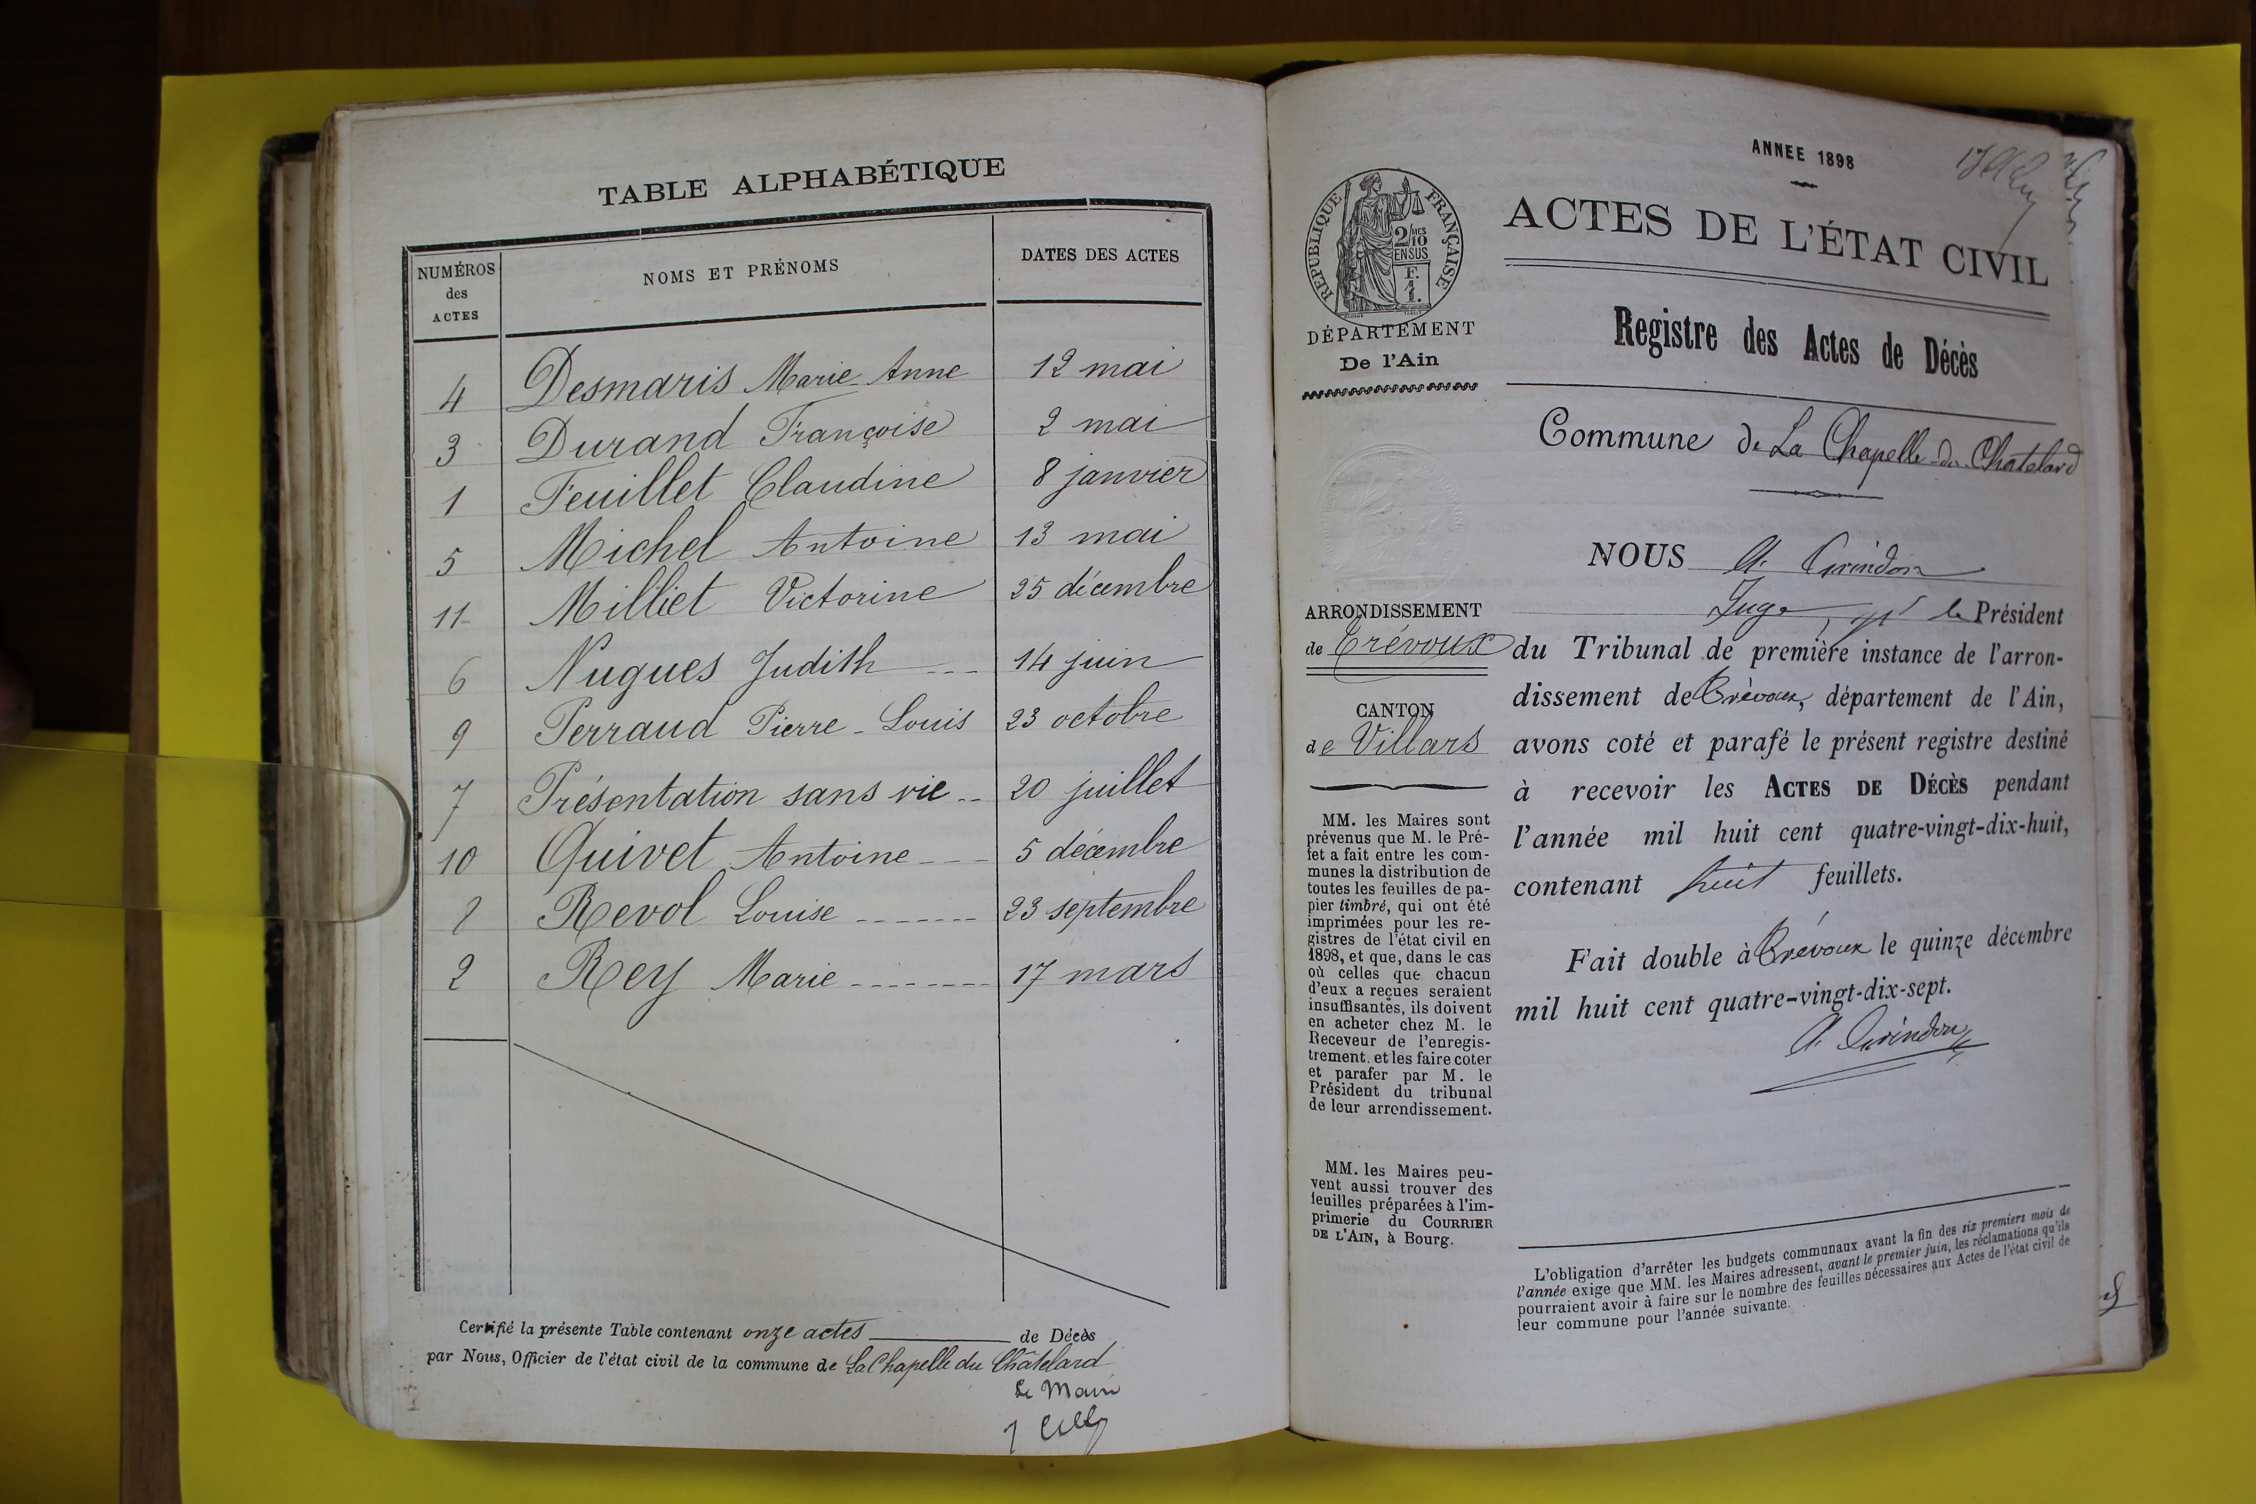 TABLE ALPHABÉTIQUE
NUMÉROS des ACTES
NOMS ET PRÉNOMS
DATES DES ACTES
4 Desmaris Marie-Anne 12 mai
3 Durand Françoise 2 mai
1 Feuillet Claudine 8 janvier
5 Michel Antoine 13 mai
11 Milliet Victorine 25 décembre
6 Nugues Judith 14 juin
9 Perraud Pierre-Louis 23 octobre
7 Présentation sans vie 20 juillet
10 Quivet Antoine 5 décembre
8 Revol Louise 23 septembre
2 Rey Marie 17 mars
Certifié la présente Table contenant onze actes de Décès
par Nous, Officier de l'état civil de la commune de La Chapelle du Châtelard
Le Maire
RÉPUBLIQUE FRANÇAISE
2/10 MES
EN SUS
F.
1.
DÉPARTEMENT
De l'Ain
ARRONDISSEMENT
de Trévoux
CANTON
de Villars
MM. les Maires sont
prévenus que M. le Pré-
fet a fait entre les com-
munes la distribution de
toutes les feuilles de pa-
pier timbré, qui ont été
imprimées pour les re-
gistres de l'état civil en
1898, et que, dans le cas
où celles que chacun
d'eux a reçues seraient
insuffisantes, ils doivent
en acheter chez M. le
Receveur de l'enregis-
trement, et les faire coter
et parafer par M. le
Président du tribunal
de leur arrondissement.
MM. les Maires peu-
vent aussi trouver des
feuilles préparées à l'im-
primerie du COURRIER
DE L'AIN, à Bourg.
ANNEE 1898
ACTES DE L'ÉTAT CIVIL
Registre des Actes de Décès
Commune de La Chapelle-du-Chatelard
NOUS A.
Juge le Président
du Tribunal de première instance de l'arron-
dissement de Trévoux, département de l'Ain,
avons coté et parafé le présent registre destiné
à recevoir les ACTES DE DÉCÈS pendant
l'année mil huit cent quatre-vingt-dix-huit,
contenant huit feuillets.
Fait double à Trévoux le quinze décembre
mil huit cent quatre-vingt-dix-sept.
L'obligation d'arrêter les budgets communaux avant la fin des six premiers mois de
l'année exige que MM. les Maires adressent, avant le premier juin, les réclamations qu'ils
pourraient avoir à faire sur le nombre des feuilles nécessaires aux Actes de l'état civil de
leur commune pour l'année suivante.